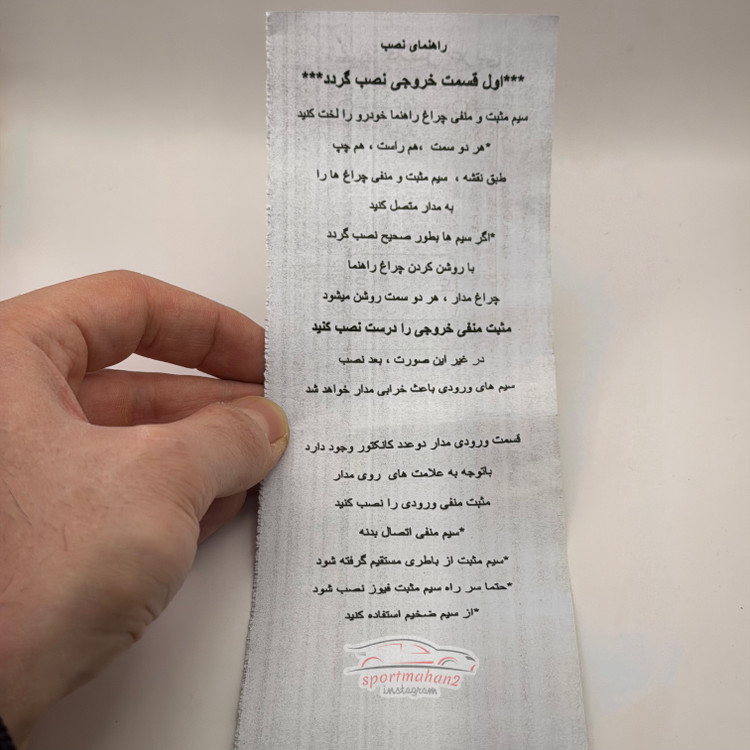 راهنمای نصب
***اول قسمت خروجی نصب گردد***
سیم مثبت و منفی چراغ راهنما خودرو را لخت کنید
*هر دو سمت ،هم راست ، هم چپ
طبق نقشه ، سیم مثبت و منفی چراغ ها را
به مدار متصل کنید
*اگر سیم ها بطور صحیح نصب گردد
با روشن کردن چراغ راهنما
چراغ مدار ، هر دو سمت روشن میشود
مثبت منفی خروجی را درست نصب کنید
در غیر این صورت ، بعد نصب
سیم های ورودی باعث خرابی مدار خواهد شد
قسمت ورودی مدار دوعدد کانکتور وجود دارد
باتوجه به علامت های روی مدار
مثبت منفی ورودی را نصب کنید
*سیم منفی اتصال بدنه
*سیم مثبت از باطری مستقیم گرفته شود
*حتما سر راه سیم مثبت فیوز نصب شود
*از سیم ضخیم استفاده کنید
sportmahan2
instagram